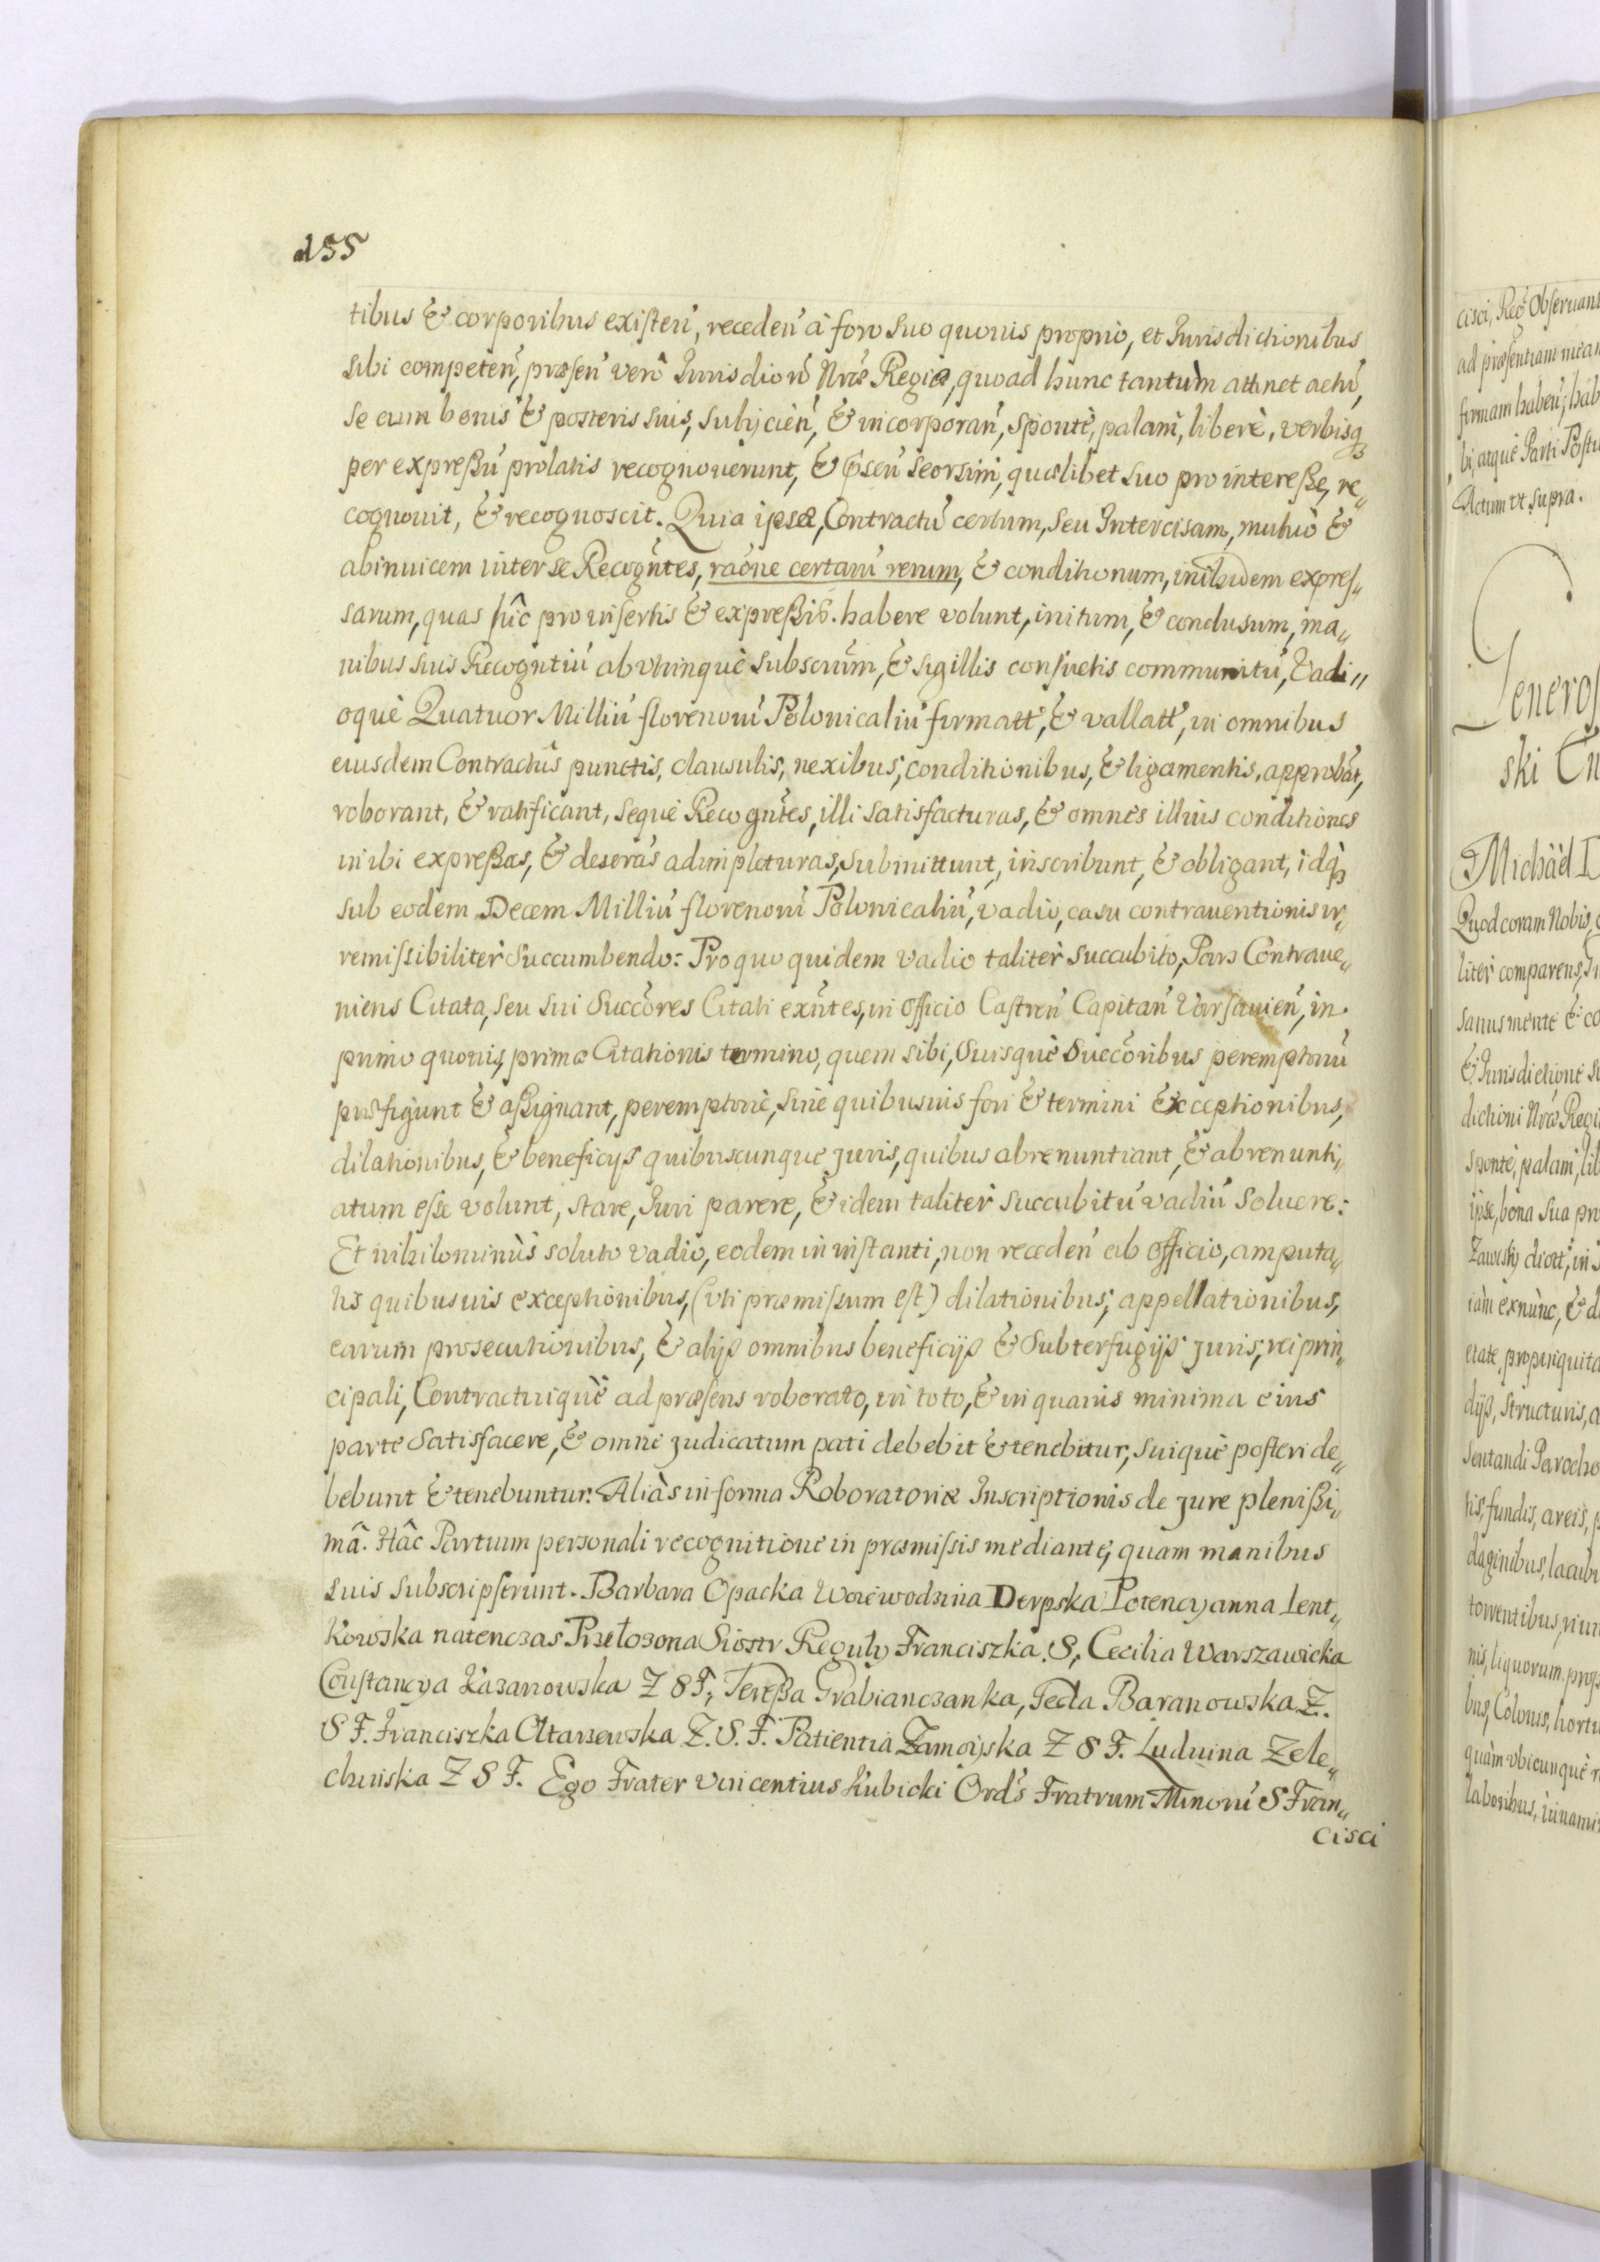 155
tibus & corporibus existeń, recedeń à foro suo quouis proprio, et Jurisdictionibus
sibi competeń, præseń verò Jurisdioni Nræ Regiæ, quoad hunc tantùm attinet actū,
se cum bonis & posteris suis, subijcień, & incorporań, spontè, palam, liberè, verbisq3
per expreßū prolatis recognouerunt, & seorsim, quælibet suo pro intereße, re„
cognouit, & recognoscit. Quia ipsæ, Contractū certum, seu Intercisam, mutuò &
abinuicem inter se Recogntes, raoñe certarū rerum, & conditionum, inibidem expres„
sarum, quas hîc pro insertis & expreßis habere volunt, initum, & conclusum, ma„
nibus suis Recogntiū abvtrinquè subscrūm, & sigillis consuetis communitū, Vadi„
oquè Quatuor Milliū florenorū Polonicaliū firmatt, & vallatt, in omnibus
eiusdem Contractûs punctis, clausulis, nexibus, conditionibus, & ligamentis, approbāt,
roborant, & ratificant, sequè Recogntes, illi satisfacturas, & omnes illius conditiones
inibi expreßas, & deseras adimpleturas, submittunt, inscribunt, & obligant, idq3
sub eodem Decem Milliū florenorū Polonicaliū, vadio, casu contrauentionis ir„
remissibiliter succumbendo: Pro quo quidem vadio taliter succubito, Pars Contraue„
niens Citata, seu sui Succōres Citati exñtes, in officio Castreń Capitań Varsauień, in
primo quouis, primæ Citationis termino, quem sibi, Suisquè Succōribus peremptoriū
præfigunt & aßignant, peremptoriè, sine quibusuis fori & termini Exceptionibus,
dilationibus, & beneficijs quibuscunque juris, quibus abrenuntiant, & abrenunti„
atum esse volunt, stare, Juri parere, & idem taliter succubitū vadiū soluere:
Et nihilominùs soluto vadio, eodem in instanti, non recedeń ab officio, amputa„
tis quibusuis exceptionibus, (vti præmissum est) dilationibus, appellationibus,
earum prosecutionibus, & alijs omnibus beneficijs & Subterfugijs juris, rei prin„
cipali, Contractuiquè ad præsens roborato, in toto, & in quauis minima eius
parte Satisfacere, & omne judicatum pati debebit & tenebitur, suiquè posteri de„
bebunt & tenebuntur. Aliàs in forma Roboratoriæ Inscriptionis de jure plenißi„
mâ. Hâc Partium personali recognitione in præmissis mediante, quam manibus
suis subscripserunt. Barbara Opacka Woiewodzina Derpska Potencyanna Lent„
kowska natenczas Przełozona Siostr Reguły Franciszka S, Cecilia Warszawicka
Constancya Kazanowska Z S F, Tereßa Grabianczanka, Tecla Baranowska Z.
S F. Franciszka Ołtarzewska Z. S. F. Patientia Zamoijska Z S F. Luduina Zele„
chinska Z S F. Ego Frater Vincentius Kubicki Ords Fratrum Minorū S Fran„
cisci
cisci, Reg Obseruant
ad præsentiam mean
firmam habeń; hab
bi, atquè Parti Postu
Actum vt supra.
Generos
ski Cu
Michàël D
Quod coram Nobis,
liter comparens,
sanus mente & co
& Jurisdictione su
dictioni Nræ Regi
spontè, palam, lib
ipse, bona sua pro
iàm exnùnc, & d
etate, propinquita
dijs, structuris, a
sentandi Parocho
tis, fundis, areis, p
daginibus, lacubu
torrentibus, riuu
nis, liquorum, prop
bus, Colonis, hortu
quàm vbicunquè n
laboribus,